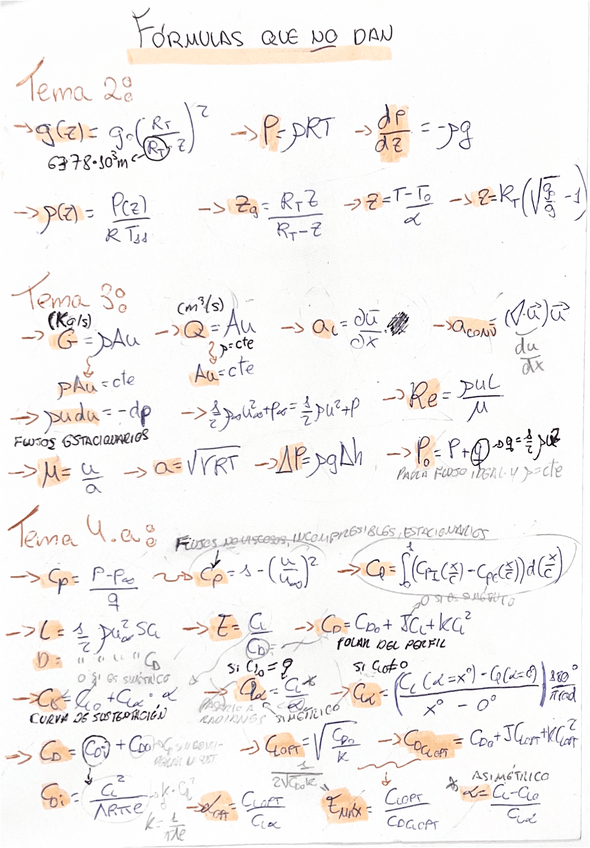 FÓRMULAS QUE NO DAN
Tema 2:
→ g(z) = g₀(R_T / (R_T - z))² → P = ρRT → dP/dz = -ρg
6378·10³m
ρ(z) = P(z) / (R T₁₁) → z_g = R_T z / (R_T - z) → z = (T - T₀)/α → z = R_T(√(g₀/g) - 1)
Tema 3:
(Kg/s) (m³/s)
→ G = ρAu → Q = Au → a_L = ∂u/∂x → a_conv = (∇·u⃗)u⃗
ρ = cte du/dx
ρAu = cte Au = cte
→ ρudu = -dp → 1/2 ρ∞u∞² + P∞ = 1/2 ρu² + P → Re = ρuL/μ
FLUJOS ESTACIONARIOS
→ M = u/a → a = √γRT → ΔP = ρgΔh → P₀ = P + q → q = 1/2 ρu²
PARA FLUJO IDEAL Y ρ = cte
Tema 4.a:
FLUJOS NO VISCOSOS, INCOMPRESIBLES, ESTACIONARIOS
→ Cp = (P - P∞)/q Cp = 1 - (u/u∞)² → Cl = ∫₀¹ (Cpi(x/c) - Cpe(x/c)) d(x/c)
→ L = 1/2 ρu∞² S Cl → E = Cl/CD → CD = CD₀ + JCl + kCl²
POLAR DEL PERFIL
D = " " " " CD
0 si es simétrico si Cl₀ = 0 si Cl₀ ≠ 0
→ Cl = Cl₀ + Clα · α → Clα = Cl/α → Clα = ((Cl(α = x°) - Cl(α = 0))/(x° - 0°)) 180°/π rad
CURVA DE SUSTENTACIÓN RADIANES SIMÉTRICO
→ CD = CDi + CD₀ → ClOPT = √(CD₀/k) → CDClOPT = CD₀ + JClOPT + kClOPT²
1/(2√(CD₀k)) ASIMÉTRICO
CDi = Cl²/(ARπe) → k·Cl² → αOPT = ClOPT/Clα EMÁX = ClOPT/CDClOPT * α = (Cl - Cl₀)/Clα